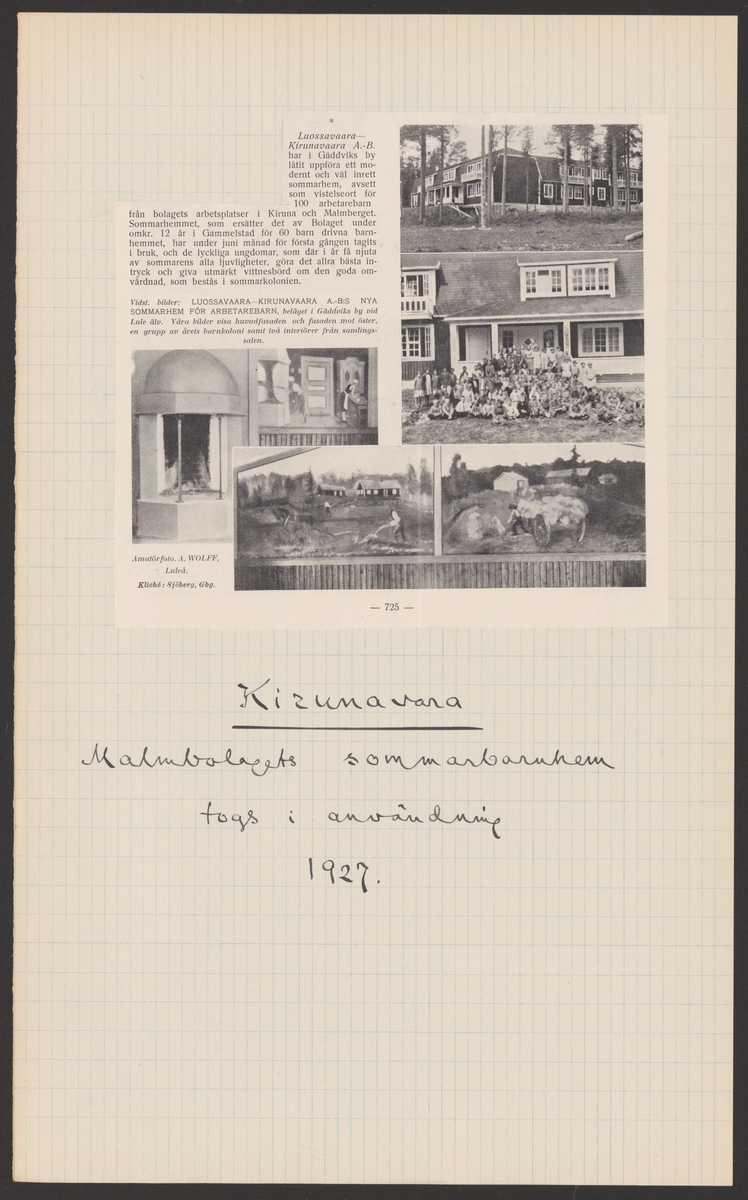 Luossavaara—
Kirunavaara A.-B.
har i Gäddviks by
låtit uppföra ett mo-
dernt och väl inrett
sommarhem, avsett
som vistelseort för
100 arbetarebarn
från bolagets arbetsplatser i Kiruna och Malmberget.
Sommarhemmet, som ersätter det av Bolaget under
omkr. 12 år i Gammelstad för 60 barn drivna barn-
hemmet, har under juni månad för första gången tagits
i bruk, och de lyckliga ungdomar, som där i år få njuta
av sommarens alla ljuvligheter, göra det allra bästa in-
tryck och giva utmärkt vittnesbörd om den goda om-
vårdnad, som bestås i sommarkolonien.
Vidst. bilder: LUOSSAVAARA—KIRUNAVAARA A.-B:S NYA
SOMMARHEM FÖR ARBETAREBARN, beläget i Gäddviks by vid
Lule älv. Våra bilder visa huvudfasaden och fasaden mot öster,
en grupp av årets barnkoloni samt två interiörer från samlings-
salen.
Amatörfoto. A. WOLFF,
Luleå.
Kliché: Sjöberg, Gbg.
— 725 —
Kirunavara
Malmbolagets sommarbarnhem
togs i användning
1927.